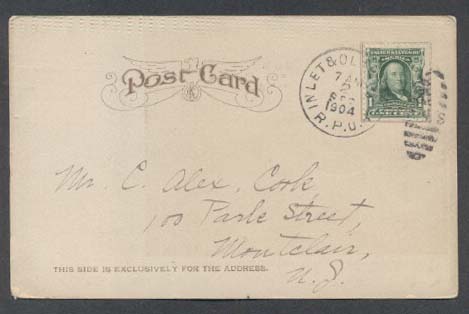 Post Card
INLET & OL
7 AM
2
1904
R.P.O.
1
Mr. C. Alex. Cook,
100 Park Street,
Montclair,
N. J.
THIS SIDE IS EXCLUSIVELY FOR THE ADDRESS.